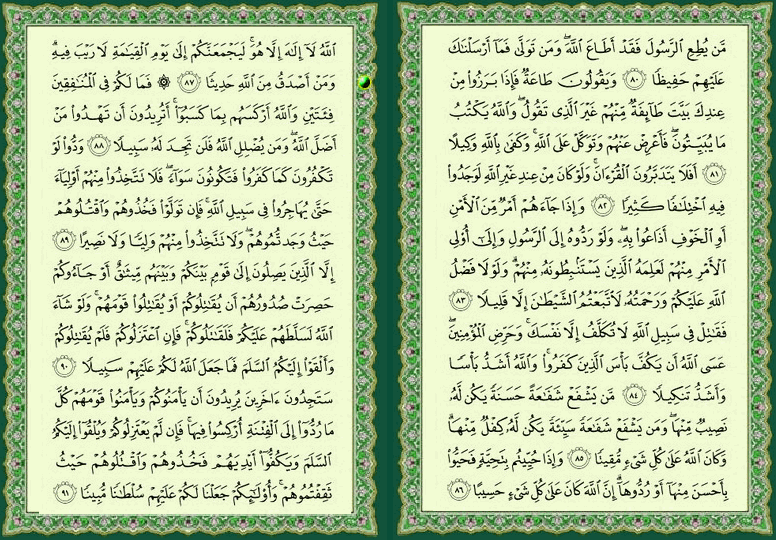 مَّن يُطِعِ ٱلرَّسُولَ فَقَدْ أَطَاعَ ٱللَّهَ ۖ وَمَن تَوَلَّىٰ فَمَآ أَرْسَلْنَـٰكَ
عَلَيْهِمْ حَفِيظًا ٨٠ وَيَقُولُونَ طَاعَةٌ فَإِذَا بَرَزُوا۟ مِنْ
عِندِكَ بَيَّتَ طَآئِفَةٌ مِّنْهُمْ غَيْرَ ٱلَّذِى تَقُولُ ۖ وَٱللَّهُ يَكْتُبُ
مَا يُبَيِّتُونَ ۖ فَأَعْرِضْ عَنْهُمْ وَتَوَكَّلْ عَلَى ٱللَّهِ ۚ وَكَفَىٰ بِٱللَّهِ وَكِيلًا
٨١ أَفَلَا يَتَدَبَّرُونَ ٱلْقُرْءَانَ ۚ وَلَوْ كَانَ مِنْ عِندِ غَيْرِ ٱللَّهِ لَوَجَدُوا۟
فِيهِ ٱخْتِلَـٰفًا كَثِيرًا ٨٢ وَإِذَا جَآءَهُمْ أَمْرٌ مِّنَ ٱلْأَمْنِ
أَوِ ٱلْخَوْفِ أَذَاعُوا۟ بِهِۦ ۖ وَلَوْ رَدُّوهُ إِلَى ٱلرَّسُولِ وَإِلَىٰٓ أُو۟لِى
ٱلْأَمْرِ مِنْهُمْ لَعَلِمَهُ ٱلَّذِينَ يَسْتَنۢبِطُونَهُۥ مِنْهُمْ ۗ وَلَوْلَا فَضْلُ
ٱللَّهِ عَلَيْكُمْ وَرَحْمَتُهُۥ لَٱتَّبَعْتُمُ ٱلشَّيْطَـٰنَ إِلَّا قَلِيلًا ٨٣
فَقَـٰتِلْ فِى سَبِيلِ ٱللَّهِ لَا تُكَلَّفُ إِلَّا نَفْسَكَ ۚ وَحَرِّضِ ٱلْمُؤْمِنِينَ ۖ
عَسَى ٱللَّهُ أَن يَكُفَّ بَأْسَ ٱلَّذِينَ كَفَرُوا۟ ۚ وَٱللَّهُ أَشَدُّ بَأْسًا
وَأَشَدُّ تَنكِيلًا ٨٤ مَّن يَشْفَعْ شَفَـٰعَةً حَسَنَةً يَكُن لَّهُۥ
نَصِيبٌ مِّنْهَا ۖ وَمَن يَشْفَعْ شَفَـٰعَةً سَيِّئَةً يَكُن لَّهُۥ كِفْلٌ مِّنْهَا ۗ
وَكَانَ ٱللَّهُ عَلَىٰ كُلِّ شَىْءٍ مُّقِيتًا ٨٥ وَإِذَا حُيِّيتُم بِتَحِيَّةٍ فَحَيُّوا۟
بِأَحْسَنَ مِنْهَآ أَوْ رُدُّوهَآ ۗ إِنَّ ٱللَّهَ كَانَ عَلَىٰ كُلِّ شَىْءٍ حَسِيبًا ٨٦
ٱللَّهُ لَآ إِلَـٰهَ إِلَّا هُوَ ۚ لَيَجْمَعَنَّكُمْ إِلَىٰ يَوْمِ ٱلْقِيَـٰمَةِ لَا رَيْبَ فِيهِ ۗ
وَمَنْ أَصْدَقُ مِنَ ٱللَّهِ حَدِيثًا ٨٧ ۞ فَمَا لَكُمْ فِى ٱلْمُنَـٰفِقِينَ
فِئَتَيْنِ وَٱللَّهُ أَرْكَسَهُم بِمَا كَسَبُوٓا۟ ۚ أَتُرِيدُونَ أَن تَهْدُوا۟ مَنْ
أَضَلَّ ٱللَّهُ ۖ وَمَن يُضْلِلِ ٱللَّهُ فَلَن تَجِدَ لَهُۥ سَبِيلًا ٨٨ وَدُّوا۟ لَوْ
تَكْفُرُونَ كَمَا كَفَرُوا۟ فَتَكُونُونَ سَوَآءً ۖ فَلَا تَتَّخِذُوا۟ مِنْهُمْ أَوْلِيَآءَ
حَتَّىٰ يُهَاجِرُوا۟ فِى سَبِيلِ ٱللَّهِ ۚ فَإِن تَوَلَّوْا۟ فَخُذُوهُمْ وَٱقْتُلُوهُمْ
حَيْثُ وَجَدتُّمُوهُمْ ۖ وَلَا تَتَّخِذُوا۟ مِنْهُمْ وَلِيًّا وَلَا نَصِيرًا ٨٩
إِلَّا ٱلَّذِينَ يَصِلُونَ إِلَىٰ قَوْمٍۭ بَيْنَكُمْ وَبَيْنَهُم مِّيثَـٰقٌ أَوْ جَآءُوكُمْ
حَصِرَتْ صُدُورُهُمْ أَن يُقَـٰتِلُوكُمْ أَوْ يُقَـٰتِلُوا۟ قَوْمَهُمْ ۚ وَلَوْ شَآءَ
ٱللَّهُ لَسَلَّطَهُمْ عَلَيْكُمْ فَلَقَـٰتَلُوكُمْ ۚ فَإِنِ ٱعْتَزَلُوكُمْ فَلَمْ يُقَـٰتِلُوكُمْ
وَأَلْقَوْا۟ إِلَيْكُمُ ٱلسَّلَمَ فَمَا جَعَلَ ٱللَّهُ لَكُمْ عَلَيْهِمْ سَبِيلًا ٩٠
سَتَجِدُونَ ءَاخَرِينَ يُرِيدُونَ أَن يَأْمَنُوكُمْ وَيَأْمَنُوا۟ قَوْمَهُمْ كُلَّ
مَا رُدُّوٓا۟ إِلَى ٱلْفِتْنَةِ أُرْكِسُوا۟ فِيهَا ۚ فَإِن لَّمْ يَعْتَزِلُوكُمْ وَيُلْقُوٓا۟ إِلَيْكُمُ
ٱلسَّلَمَ وَيَكُفُّوٓا۟ أَيْدِيَهُمْ فَخُذُوهُمْ وَٱقْتُلُوهُمْ حَيْثُ
ثَقِفْتُمُوهُمْ ۚ وَأُو۟لَـٰٓئِكُمْ جَعَلْنَا لَكُمْ عَلَيْهِمْ سُلْطَـٰنًا مُّبِينًا ٩١